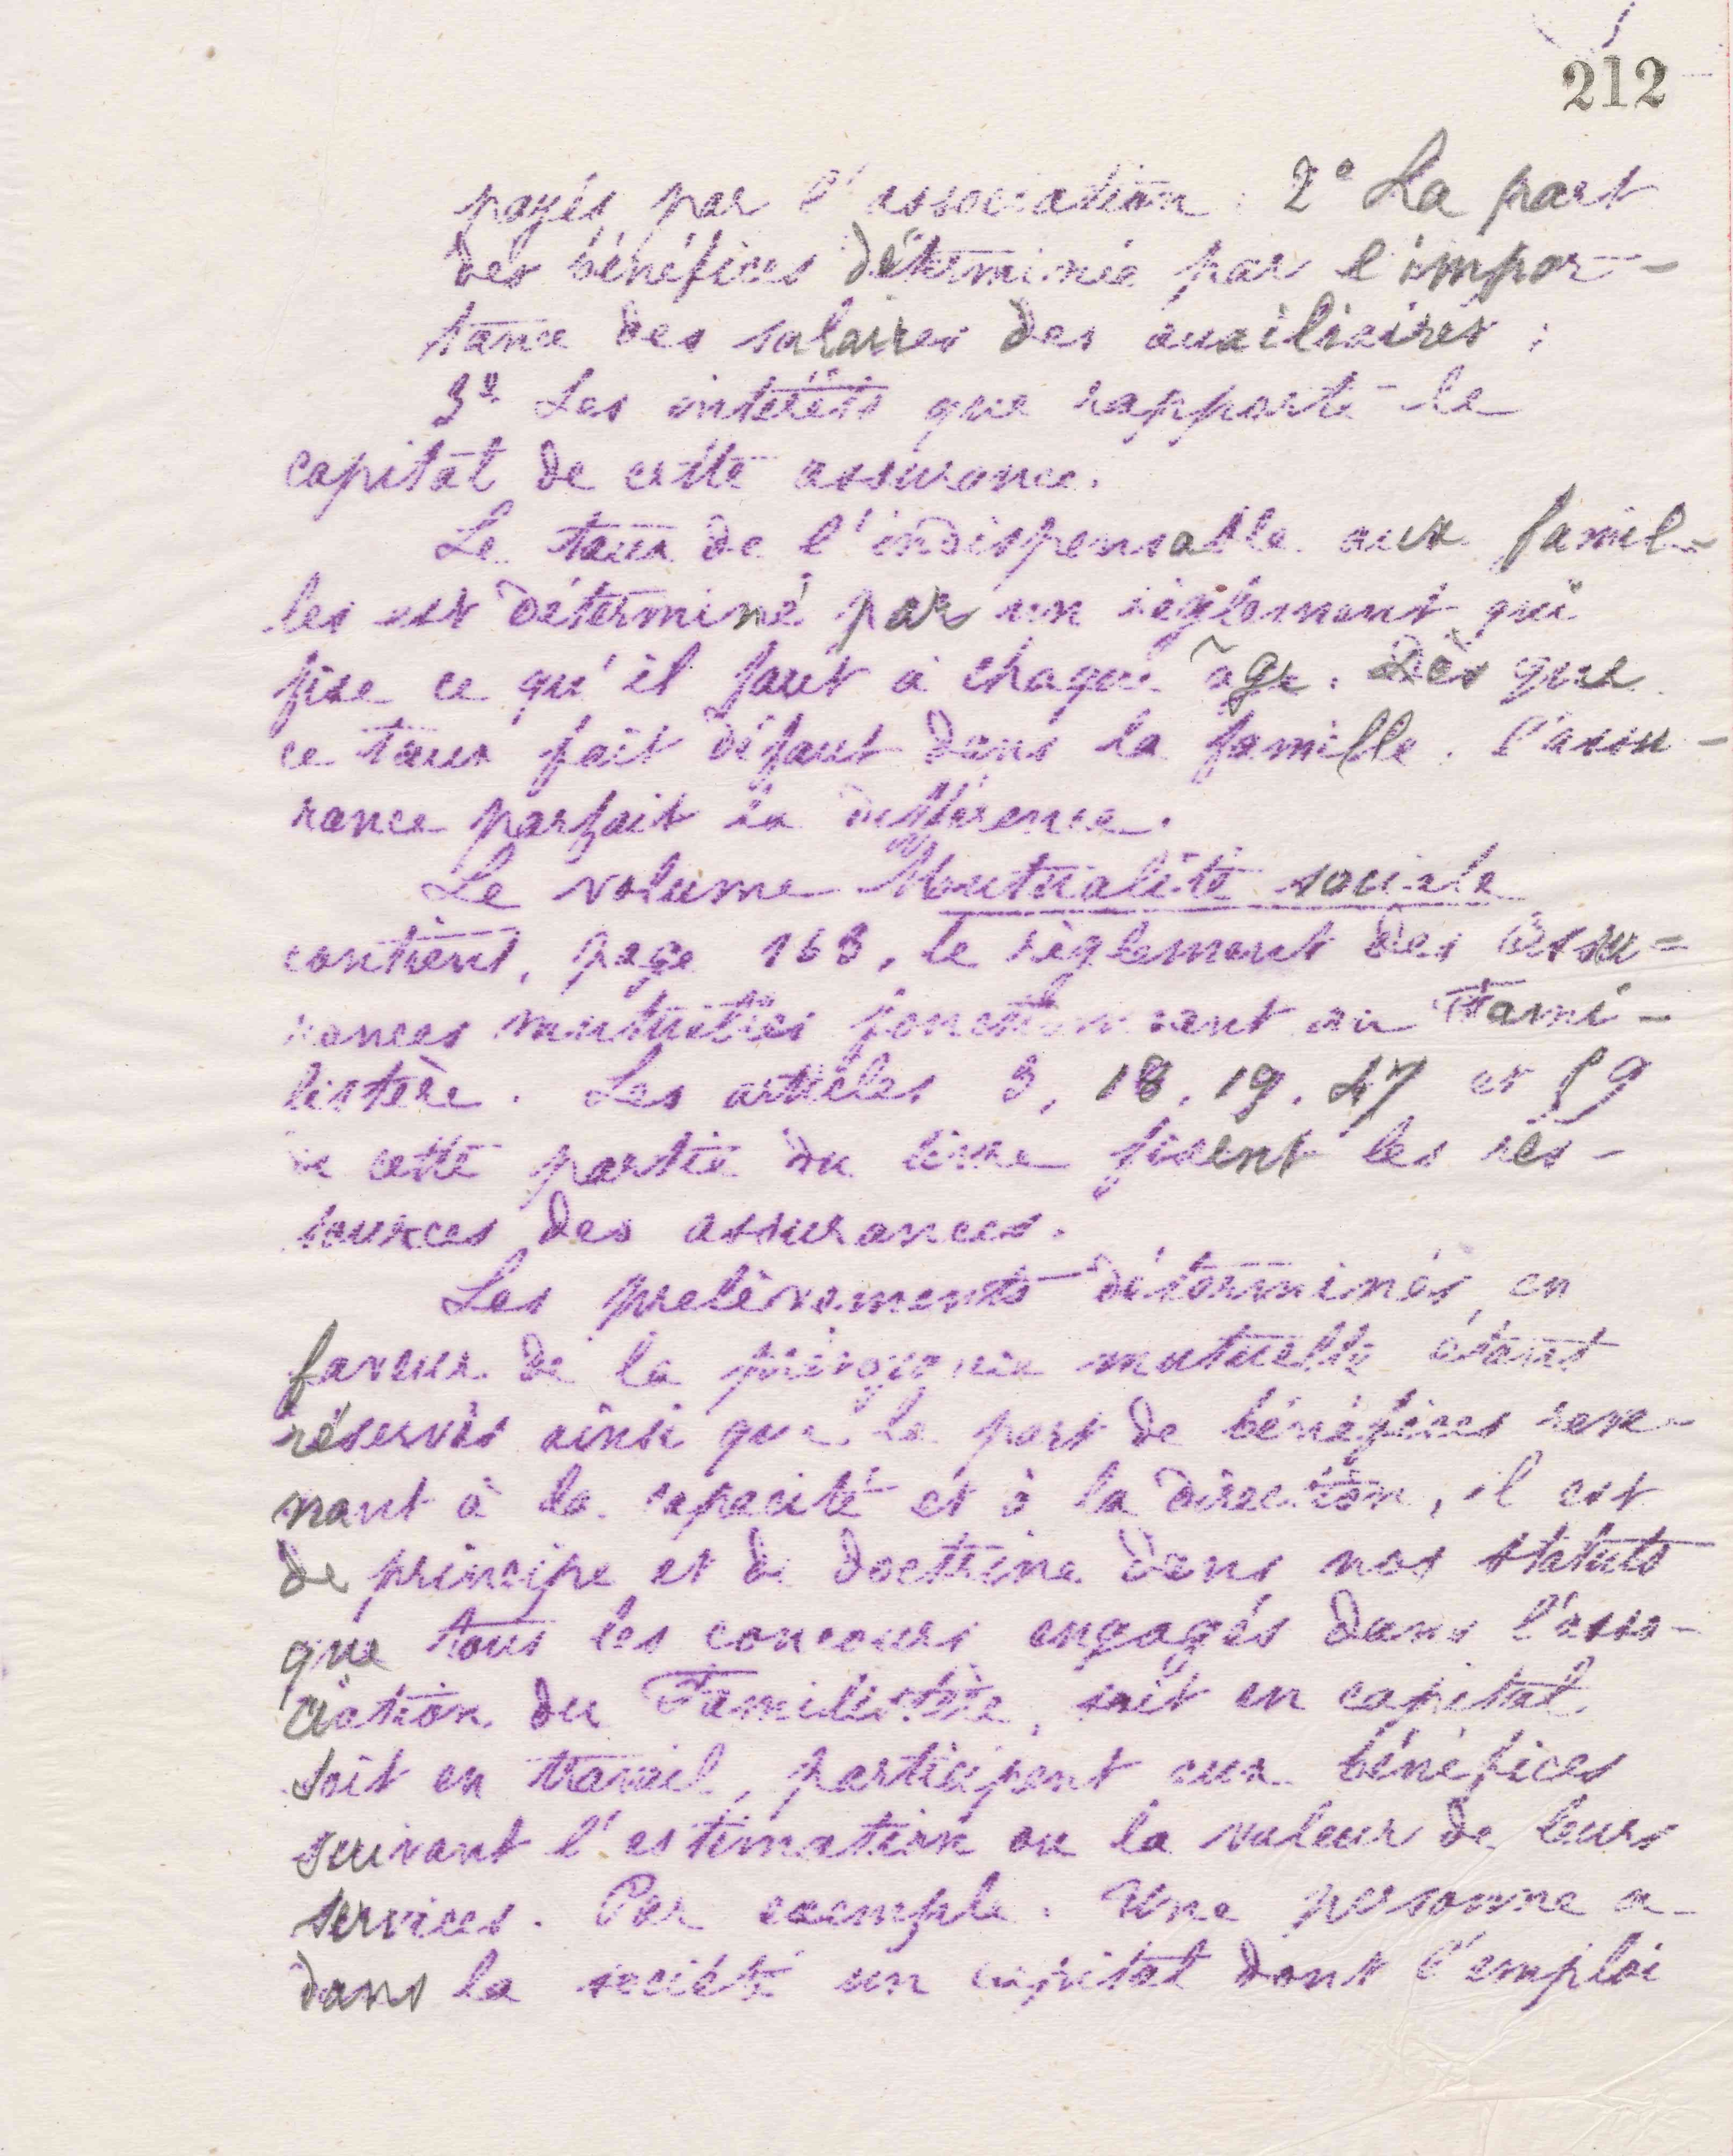 212
payés par l'association. 2° La part
des bénéfices déterminée par l'impor-
tance des salaires des auxiliaires ;
3° Les intérêts que rapporte le
capital de cette assurance.
Le taux de l'indispensable aux famil-
les est déterminé par un règlement qui
fixe ce qu'il faut à chaque âge. Dès que
ce taux fait défaut dans la famille. l'assu-
rance parfait la différence.
Le volume Mutualité sociale
contient, page 163, le règlement des assu=
rances mutuelles fonctionnant au Fami-
listère. Les articles 3, 18, 19, 47 et 59
de cette partie du livre fixent les res-
sources des assurances.
Les prelèvements déterminés, en
faveur de la prévoyance mutuelle étant
réservés ainsi que la part de bénéfices reve-
nant à la capacité et à la direction, il est
de principe et de doctrine dans nos statuts
que tous les concours engagés dans l'asso-
ciation du Familistère, soit en capital
soit en travail, participent aux bénéfices
suivant l'estimation ou la valeur de leurs
services. Par exemple. Une personne a
dans la société un capital dont l'emploi